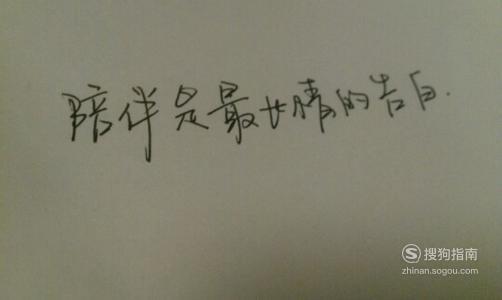 陪伴是最长情的告白.
搜狗指南
zhinan.sogou.com